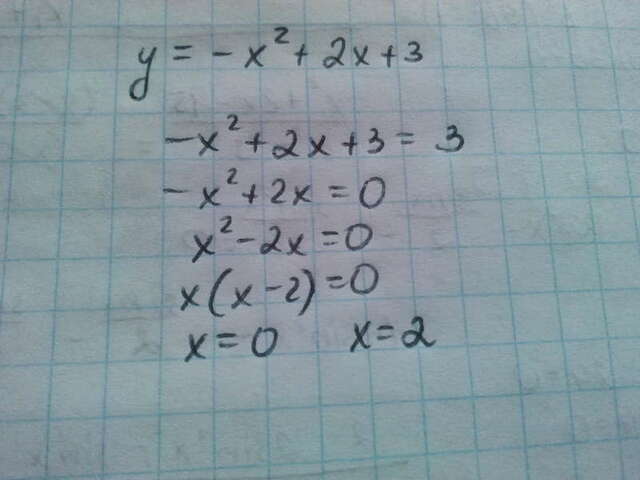 y = -x² + 2x + 3
-x² + 2x + 3 = 3
-x² + 2x = 0
x² - 2x = 0
x(x - 2) = 0
x = 0 x = 2